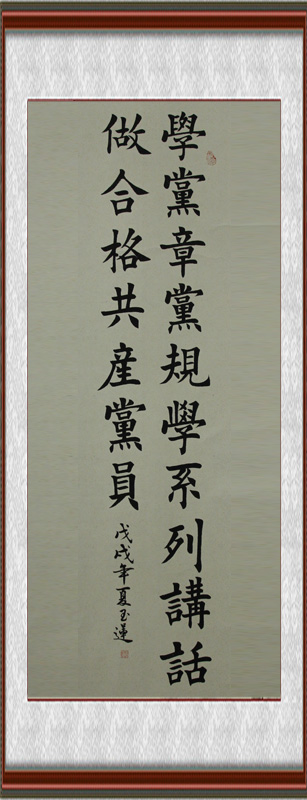 學黨章黨規學系列講話
做合格共産黨員
戊戌年夏玉蓮